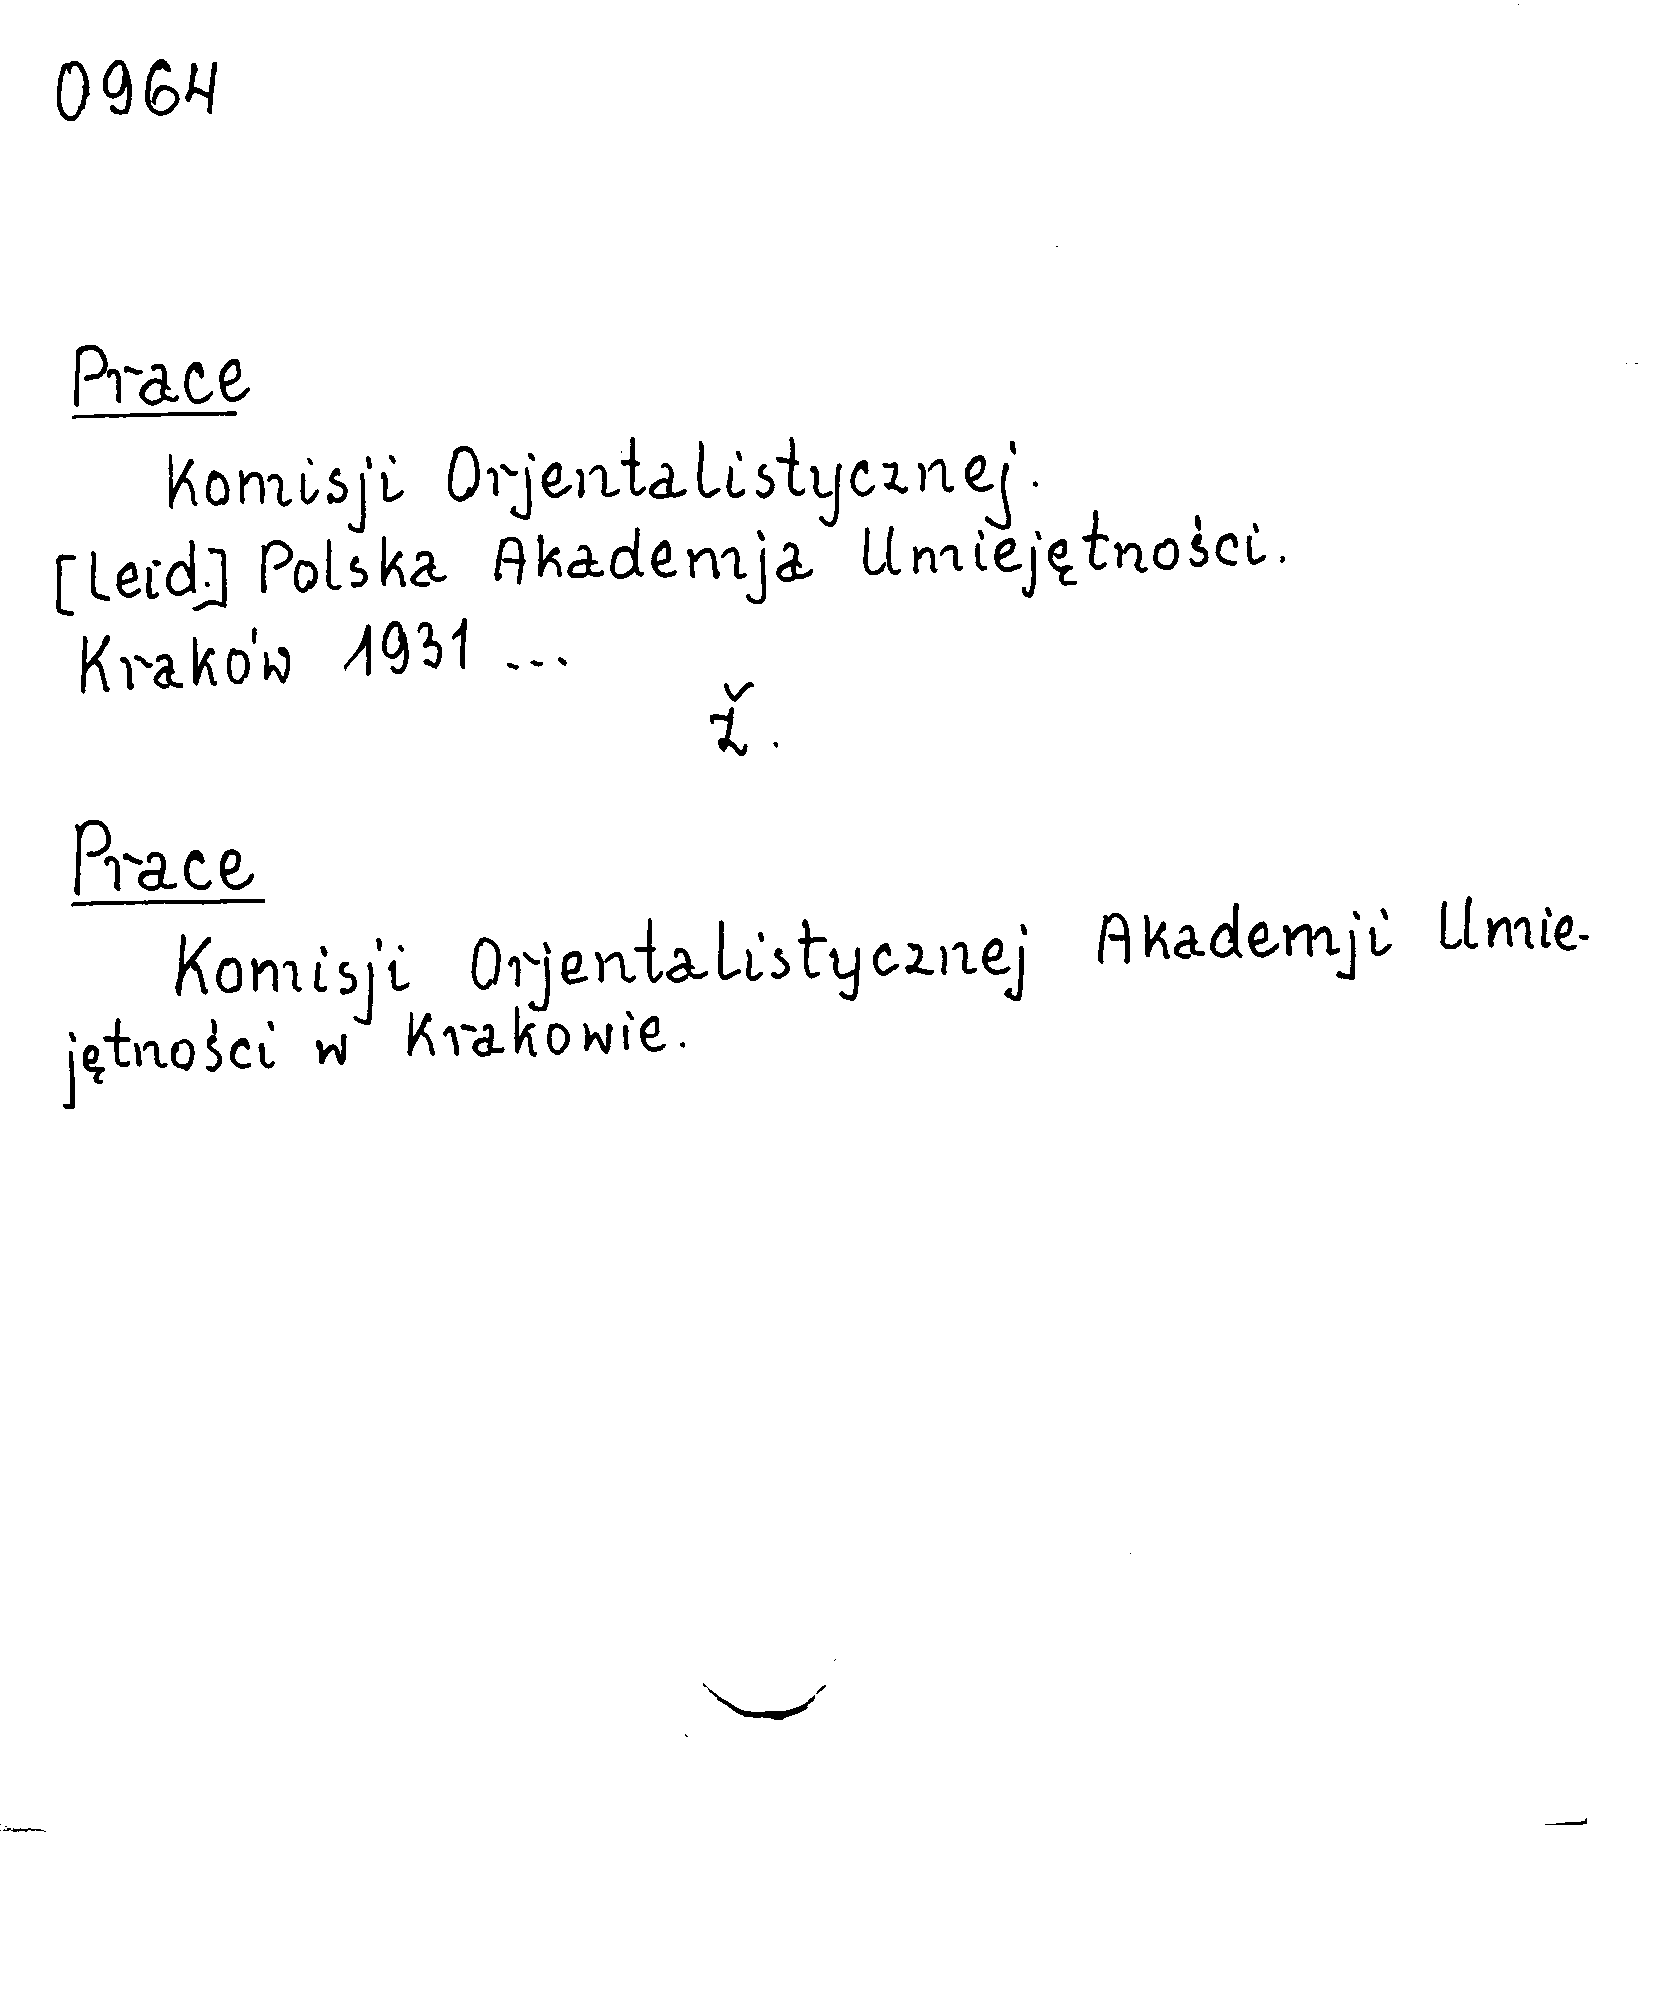 0964
Prace
Komisji Orjentalistycznej.
[Leid.] Polska Akademja Umiejętności.
Kraków 1931 ...
ž.
Prace
Komisji Orjentalistycznej Akademji Umie-
jętności w Krakowie.